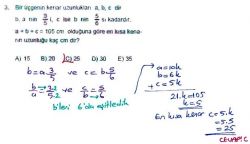 3. Bir üçgenin kenar uzunlukları a, b, c dir
b, a nın 3/5 i, c ise b nin 5/6 sı kadardır.
a + b + c = 105 cm olduğuna göre en kısa kena-
rın uzunluğu kaç cm dir?
A) 15 B) 20 C) 25 D) 30 E) 35
b = a.3/5 ve c = b.5/6
b/a = 3.2/5.2 ve c/b = 5/6
b'leri 6'da eşitledik
a = 10k
b = 6k
+ c = 5k
21.k = 105
k = 5
En kısa kenar c = 5.k
= 5.5
= 25
CEVAP: C